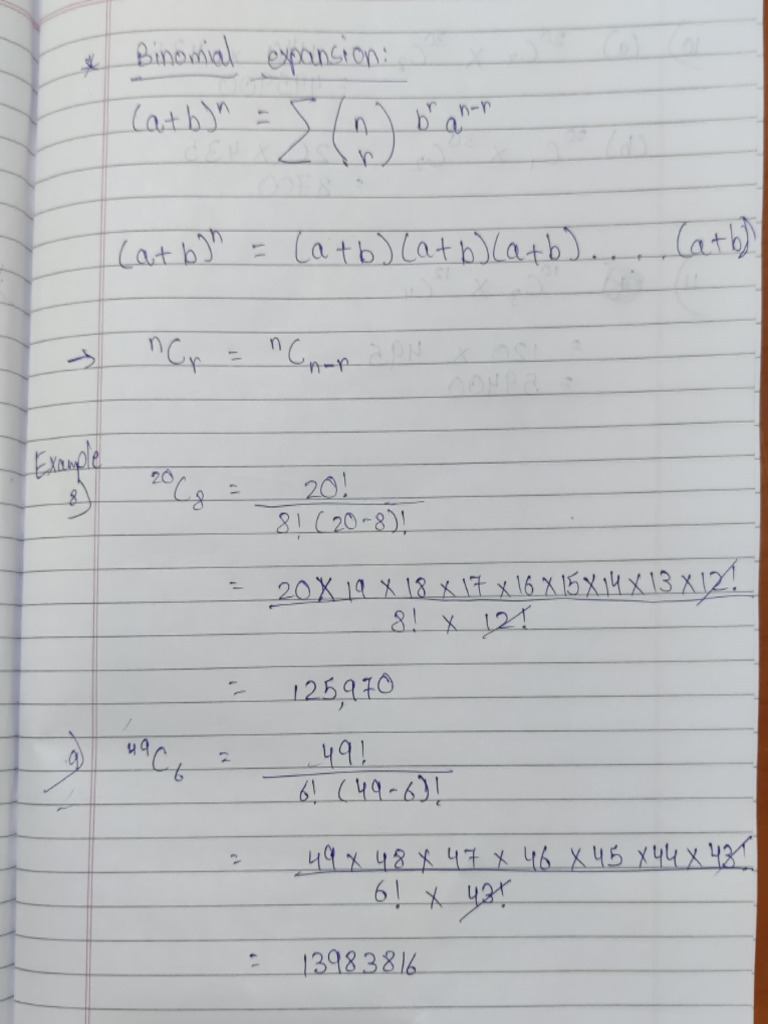 * Binomial expansion:
(a+b)ⁿ = Σ (n r) bʳ aⁿ⁻ʳ
(a+b)ⁿ = (a+b)(a+b)(a+b)..... (a+b)
→ ⁿCᵣ = ⁿCₙ₋ᵣ
Example
8) ²⁰C₈ = 20!
8! (20-8)!
= 20 × 19 × 18 × 17 × 16 × 15 × 14 × 13 × 12!
8! × 12!
= 125,970
9) ⁴⁹C₆ = 49!
6! (49-6)!
= 49 × 48 × 47 × 46 × 45 × 44 × 43!
6! × 43!
= 13983816